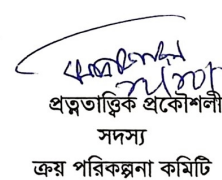 প্রত্নতাত্ত্বিক প্রকৌশলী
সদস্য
ক্রয় পরিকল্পনা কমিটি